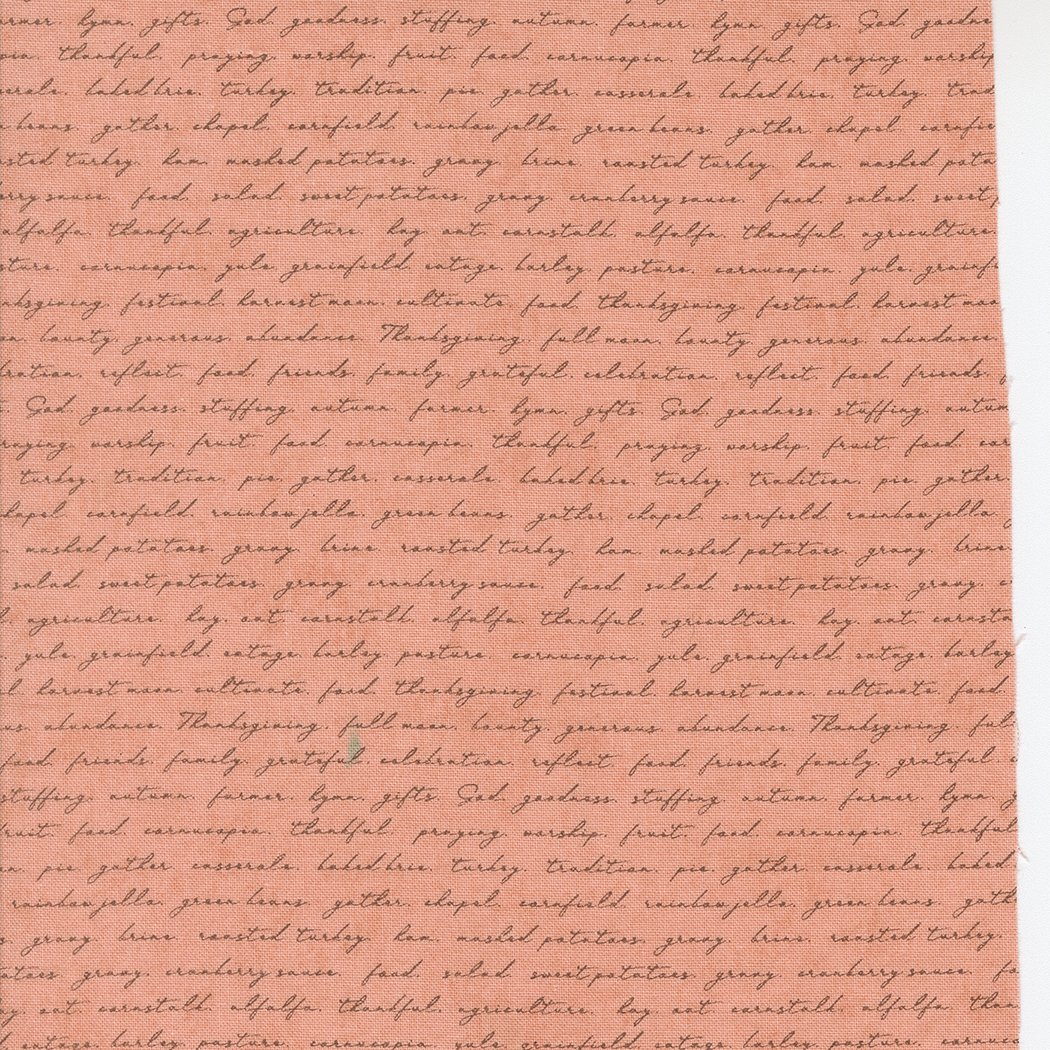 farmer. hymn. gifts. God. goodness. stuffing. autumn. farmer. hymn. gifts. God.
thankful. praying. worship. fruit. food. cornucopia. thankful. praying. worship
baked brie. turkey. tradition. pie. gather. casserole. baked brie. turkey.
beans. gather. chapel. cornfield. rainbow jello. green beans. gather. chapel.
turkey. ham. mashed potatoes. gravy. brine. roasted turkey. ham. mashed
sauce. food. salad. sweet potatoes. gravy. cranberry sauce. food. salad. sweet
alfalfa. thankful. agriculture. hay. oat. cornstalk. alfalfa. thankful. agriculture.
cornucopia. yule. grainfield. cottage. barley. pasture. cornucopia. yule.
festival. harvest moon. cultivate. food. thanksgiving. festival. harvest
bounty. generous. abundance. Thanksgiving. full moon. bounty. generous. abundance.
reflect. food. friends. family. grateful. celebration. reflect. food. friends.
God. goodness. stuffing. autumn. farmer. hymn. gifts. God. goodness. stuffing.
worship. fruit. food. cornucopia. thankful. praying. worship. fruit. food.
turkey. tradition. pie. gather. casserole. baked brie. turkey. tradition. pie. gather.
chapel. cornfield. rainbow jello. green beans. gather. chapel. cornfield. rainbow jello.
mashed potatoes. gravy. brine. roasted turkey. ham. mashed potatoes. gravy. brine.
salad. sweet potatoes. gravy. cranberry sauce. food. salad. sweet potatoes. gravy.
agriculture. hay. oat. cornstalk. alfalfa. thankful. agriculture. hay. oat.
yule. grainfield. cottage. barley. pasture. cornucopia. yule. grainfield. cottage. barley
harvest moon. cultivate. food. thanksgiving. festival. harvest moon. cultivate. food.
abundance. Thanksgiving. full moon. bounty. generous. abundance. Thanksgiving.
food. friends. family. grateful. celebration. reflect. food. friends. family. grateful.
stuffing. autumn. farmer. hymn. gifts. God. goodness. stuffing. autumn. farmer. hymn.
food. cornucopia. thankful. praying. worship. fruit. food. cornucopia. thankful
pie. gather. casserole. baked brie. turkey. tradition. pie. gather. casserole. baked
rainbow jello. green beans. gather. chapel. cornfield. rainbow jello. green beans.
gravy. brine. roasted turkey. ham. mashed potatoes. gravy. brine. roasted turkey.
gravy. cranberry sauce. food. salad. sweet potatoes. gravy. cranberry sauce.
oat. cornstalk. alfalfa. thankful. agriculture. hay. oat. cornstalk. alfalfa.
cottage. barley. pasture. cornucopia. yule. grainfield. cottage. barley. pasture.